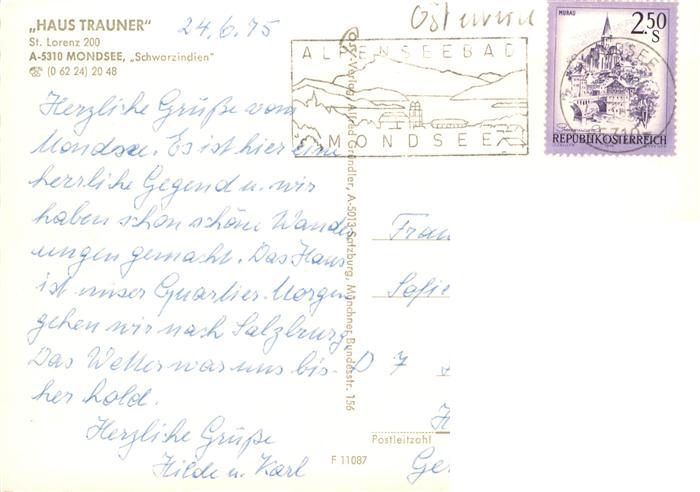 „HAUS TRAUNER"
St. Lorenz 200
A-5310 MONDSEE, „Schwarzindien"
☎ (0 62 24) 20 48
24.6.75
ALPENSEEBAD
MONDSEE
MURAU
2.50
S
REPUBLIK ÖSTERREICH
Herzliche Grüße vom
Mondsee. Es ist hier eine
herrliche Gegend u. wir
haben schon schöne Wander
ungen gemacht. Das Haus
ist unser Quartier. Morgen
gehen wir nach Salzburg.
Das Wetter war uns bis-
her hold.
Herzliche Grüße
Hilde u. Karl
Verlag Alfred A-5013 Salzburg, Münchner Bundesstr. 156
Frau
Sofie
D 7
Postleitzahl
F 11087